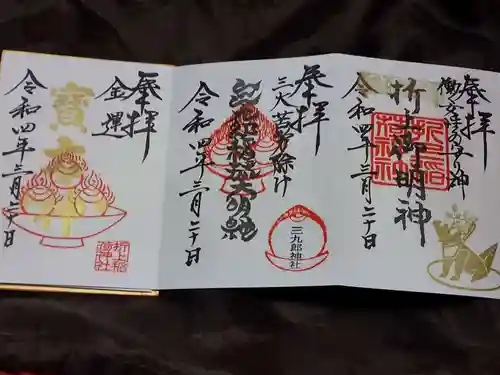 奉拝
働く女性の守り神
折上御明神
折上稲荷神社
令和四年三月二十日
奉拝
三大苦労除け
三九郎神社
令和四年三月二十日
奉拝
金運
寶
折上稲荷神社
令和四年三月二十日